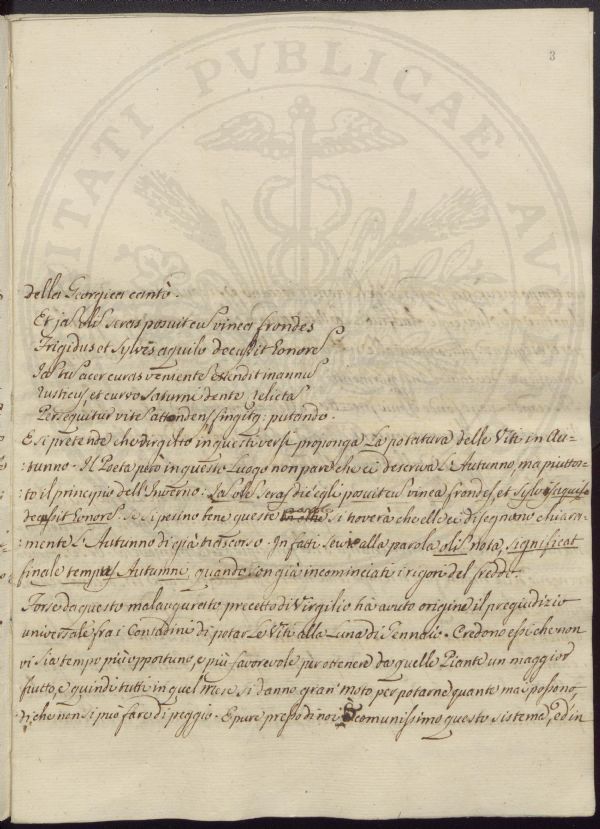 3
PUBLICAE
della Georgica cantò.
Et ja olis seras posuit cus vinea frondes
Frigidus et sylvis aquilo decussit honores
Jas tus acer curas venientes extendit in annus
rusticus, et curvo saturni dente relictas
Persequitur vites attondens fingitq: putando.
E si pretende che Virgilio in questi versi proponga la potatura delle Viti in Au-
:tunno. Il Poeta però in questo Luogo non pare che ci descriva l'Autunno, ma piuttos-
:to il principio dell'Inverno. olis seras dic'egli posuit cus vinea frondes, et sylvis aquilo
decussit honores. Se si pesino bene queste parole si troverà che elle ci disegnano chiara-
:mente l'Autunno di già trascorso. In fatti Servio alla parola olis nota, significat
finale tempus Autumni, quando son già incominciati i rigori del freddo.
Forse da questo malaugurato precetto di Virgilio hà avuto origine il pregiudizio
universale fra i Contadini di potar le Viti alla Luna di Gennaio. Credono essi che non
vi sia tempo più opportuno, e più favorevole per ottenere da quelle Piante un maggior
frutto, e quindi tutti in quel mese si danno gran moto per potarne quante mai possono,
di che non si può fare di peggio. Eppure presso di noi è comunissimo questo sistema, ed in